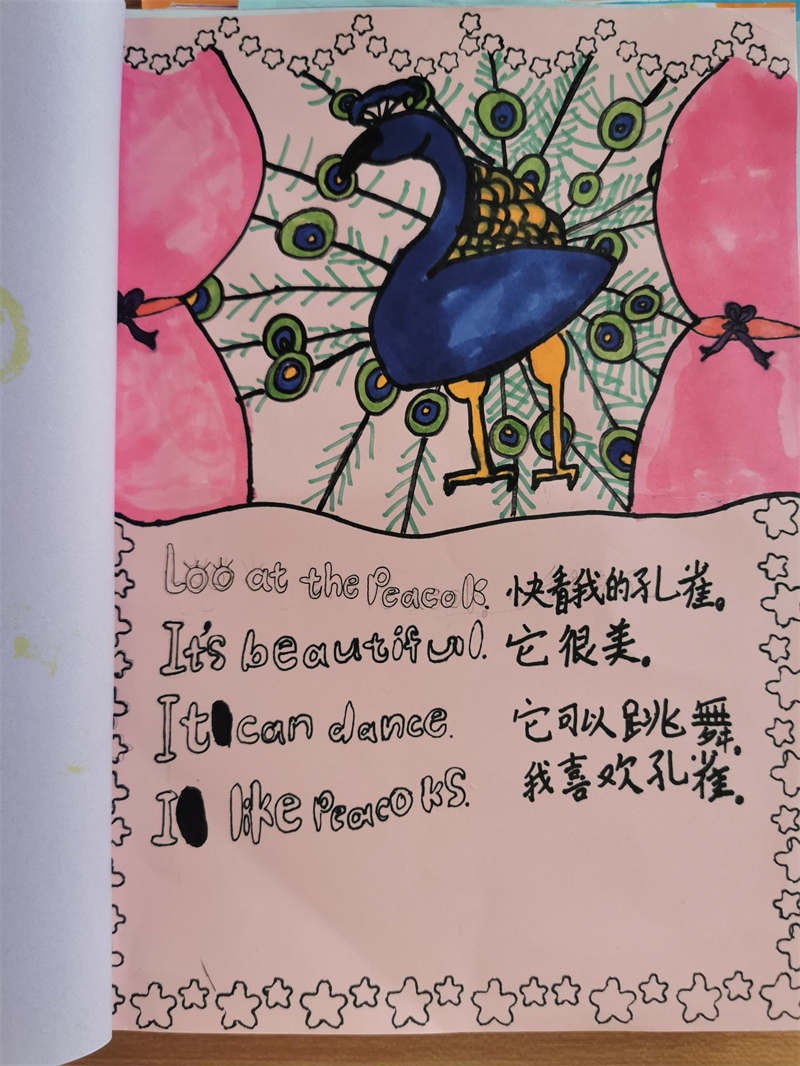 Loo at the Peacok. 快看我的孔雀。
It's beautiful. 它很美。
It can dance. 它可以跳舞。
I like Peacoks. 我喜欢孔雀。